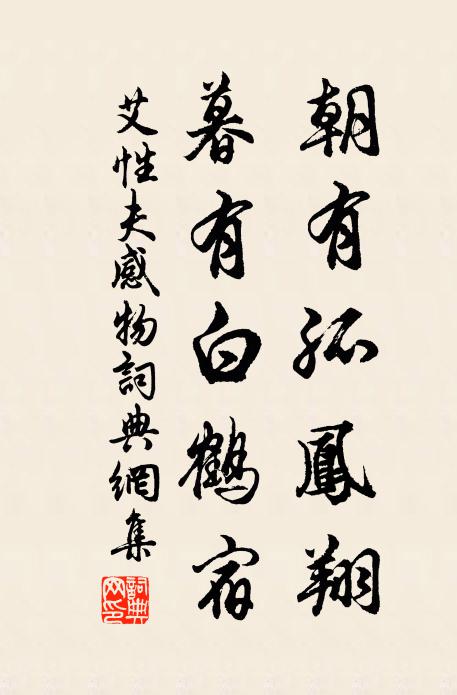 朝有孤鳳翔
暮有白鶴宿
艾性夫感物詞典網集
詞典网印